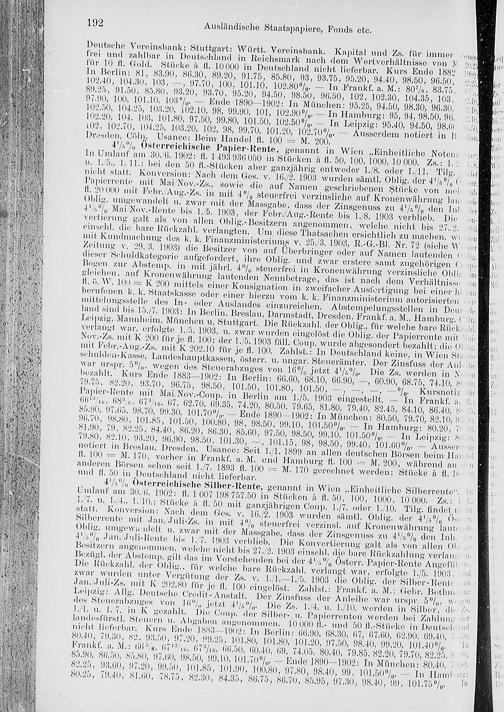 192
Ausländische Staatspapiere, Fonds etc.
Deutsche Vereinsbank; Stuttgart: Württ. Vereinsbank. Kapital und Zs. für immer
frei und zahlbar in Deutschland in Reichsmark nach dem Wertverhältnisse von
für 10 fl. Gold. Stücke à fl. 10 000 in Deutschland nicht lieferbar. Kurs Ende 1882
In Berlin: 81, 83.90, 86.30, 89.20, 91.75, 85.80, 93, 93.75, 95.20, 94.40, 98.50, 96.50,
102.40, 104.30, 103, —, 97.70, 100, 101.10, 102.80%. — In Frankf. a. M.:
89.25, 91.50, 85.80, 93.20, 93.70, 95.20, 94.50, 98.50, 96.50, 102, 102.30, 104.35, 103,
97.90, 100, 101.10, 103%. — Ende 1890—1902: In München: 95.25, 94.50, 98.30, 96.30,
102.50, 104.25, 103.20, 102.10, 98, 99.90, 101, 102.90%. — In Hamburg: 95, 94, 98.50, 96,
102.20, 104, 103, 101.80, 97.50, 99.80, 101.50, 102.50%. — In Leipzig: 95.40, 94.50, 98.
102, 102.70, 104.25, 103.20, 102, 98, 99.70, 101.20, 102.70%. — Ausserdem notiert in
Dresden, Cöln. Usance: Beim Handel fl. 100 = M. 200.
4¹/₅% Österreichische Papier-Rente, genannt in Wien „Einheitliche Noten
In Umlauf am 30./6. 1902: fl. 1 493 936 050 in Stücken à fl. 50, 100, 1000, 10 000. Zs.:
1./5., 1./11.; bei den 50 fl.-Stücken aber ganzjährig entweder 1./8. oder 1./11. Tilg.
nicht statt. Konversion: Nach dem Ges. v. 16./2. 1903 wurden sämtl. Oblig. der 4¹/₅%
Papierrente mit Mai/Nov.-Zs., sowie die auf Namen geschriebenen Stücke von
fl. 20 000 mit Febr./Aug.-Zs. in mit 4% steuerfrei verzinsliche auf Kronenwährung
Oblig. umgewandelt u. zwar mit der Massgabe, dass der Zinsgenuss zu 4¹/₅% den
4¹/₅% Mai/Nov.-Rente bis 1./5. 1903, der Febr./Aug.-Rente bis 1./8. 1903 verblieb. Die
vertierung galt als von allen Oblig.-Besitzern angenommen, welche nicht bis 27./2.
einschl. die bare Rückzahl. verlangten. Um diese Thatsachen ersichtlich zu machen,
mit Kundmachung des k. k. Finanzministeriums v. 25./3. 1903, R.-G.-Bl. Nr. 72 (siehe
Zeitung v. 29./3. 1903) die Besitzer von auf Überbringer oder auf Namen lautenden
dieser Schuldkategorie aufgefordert, ihre Oblig. und zwar erstere samt zugehörigen
Bogen zur Abstemp. in mit jährl. 4% steuerfrei in Kronenwährung verzinsliche
gleichen, auf Kronenwährung lautenden Nennbetrage, das ist nach dem Verhältnisse
fl. ö. W. 100 = K 200 mittels einer Konsignation in zweifacher Ausfertigung bei einer
berufenen k. k. Staatskasse oder einer hierzu vom k. k. Finanzministerium autorisierten
mittelungsstelle des In- oder Auslandes einzureichen. Abstempelungsstellen in
land sind bis 15./7. 1903: In Berlin, Breslau, Darmstadt, Dresden, Frankf. a. M., Hamburg
Leipzig, Mannheim, München u. Stuttgart. Die Rückzahl. der Oblig., für welche bare
verlangt war, erfolgte 1./5. 1903, u. zwar wurden eingelöst die Oblig. der Papierrente mit
Nov.-Zs. mit K 200 für je fl. 100; der 1./5. 1903 fäll. Coup. wurde abgesondert bezahlt;
mit Febr./Aug.-Zs. mit K 202.10 für je fl. 100. Zahlst.: In Deutschland keine, in Wien
schulden-Kasse, Landeshauptkassen, österr. u. ungar. Steuerämter. Der Zinsfuss der
war urspr. 5%, wegen des Steuerabzuges von 16% jetzt 4¹/₅%. Die Zs. werden in
bezahlt. Kurs Ende 1883—1902: In Berlin: 66.60, 68.10, 66.90, —, 60.90, 68.75, 74.10,
79.75, 82.20, 93.70, 96.75, 98.50, 101.50, 101.80, 101.50, — %. Kursnotiz
Papier-Rente mit Mai/Nov.-Coup. in Berlin am 1./5. 1903 eingestellt. — In Frankf.
67, 62.70, 69.35, 74.20, 80.50, 79.65, 81.80, 79.40, 82.45, 84.10, 86.40,
85.90, 97.65, 98.70, 99.30, 101.70%. — Ende 1890—1902: In München: 80.50, 79.70, 82.10,
96.70, 98.80, 101.85, 101.50, 100.80, 98, 98.50, 99.10, 101.50%. — In Hamburg: 80.20,
81.90, 79, 82.25, 84.40, 86.20, 86.30, 85.60, 97.50, 98.50, 99.10, 101.50%. — In Leipzig:
79.80, 82.10, 93.20, 96.90, 98.50, 101.30, —, 101.15, 98, 98.50, 99.40, 101.60%. —
notiert in Breslau, Dresden. Usance: Seit 1./1. 1899 an allen deutschen Börsen beim
fl. 100 = M. 170, vorher in Frankf. a. M. und Hamburg fl. 100 = M. 200, während an
anderen Börsen schon seit 1./7. 1893 fl. 100 = M. 170 gerechnet werden; Stücke à fl.
und fl. 50 in Deutschland nicht lieferbar.
4¹/₅% Österreichische Silber-Rente, genannt in Wien „Einheitliche Silberrente“.
Umlauf am 30./6. 1902: fl. 1 007 198 757.50 in Stücken à fl. 50, 100, 1000, 10 000. Zs.:
1./7. u. 1./4., 1./10.; Stücke à fl. 50 mit ganzjährigen Coup. 1./7. oder 1./10. Tilg. findet
statt. Konversion: Nach dem Ges. v. 16./2. 1903 wurden sämtl. Oblig. der 4¹/₅%
Silberrente mit Jan./Juli-Zs. in mit 4% steuerfrei verzinsl. auf Kronenwährung
Oblig. umgewandelt u. zwar mit der Massgabe, dass der Zinsgenuss zu 4¹/₅% den Inh.
4¹/₅% Jan./Juli-Rente bis 1./7. 1903 verblieb. Die Konvertierung galt als von allen
Besitzern angenommen, welche nicht bis 27./2. 1903 einschl. die bare Rückzahlung
Bezügl. der Abstemp. gilt das im Vorstehenden bei der 4¹/₅% Österr. Papier-Rente
Die Rückzahl. der Oblig., für welche bare Rückzahl. verlangt war, erfolgte 1./5. 1903,
zwar wurden unter Vergütung der Zs. v. 1./1.—1./5. 1903 die Oblig. der Silber-Rente
Jan./Juli-Zs. mit K 202.80 für je fl. 100 eingelöst. Zahlst.: Frankf. a. M.: Gebr.
Leipzig: Allg. Deutsche Credit-Anstalt. Der Zinsfuss der Anleihe war urspr. 5%,
des Steuerabzuges von 16% jetzt 4¹/₅%. Die Zs. 1./4. u. 1./10. werden in Silber,
1./1. u. 1./7. in K gezahlt. Die Coup. der Silber- u. Papierrenten werden bei Zahlung
landesfürstl. Steuern u. Abgaben angenommen. 10 000 fl.- und 50 fl.-Stücke in
nicht lieferbar. Kurs Ende 1883—1902: In Berlin: 66.90, 68.30, 67, 67.60, 62.90, 69.40,
80.40, 79.30, 82, 93.50, 97.20, 99.25, 101.80, 101.80, 101.20, 97.50, 98.40, 99.20, 101.40%.
Frankf. a. M.: 66.50, 60.40, 69, 74.05, 80.40, 79.85, 82.20, 79.70, 82.25
85.90, 86.50, 85.80, 97.60, 98.50, 99.10, 101.70%. — Ende 1890—1902: In München: 80.40,
82.25, 93.60, 97.20, 99.50, 101.85, 101.90, 100.80, 97.80, 98.40, 99, 101.50%. — In
80.25, 79.40, 81.60, 78.75, 82.30, 84.35, 86.75, 86.70, 85.95, 97.30, 98.40, 99, 101.75%.